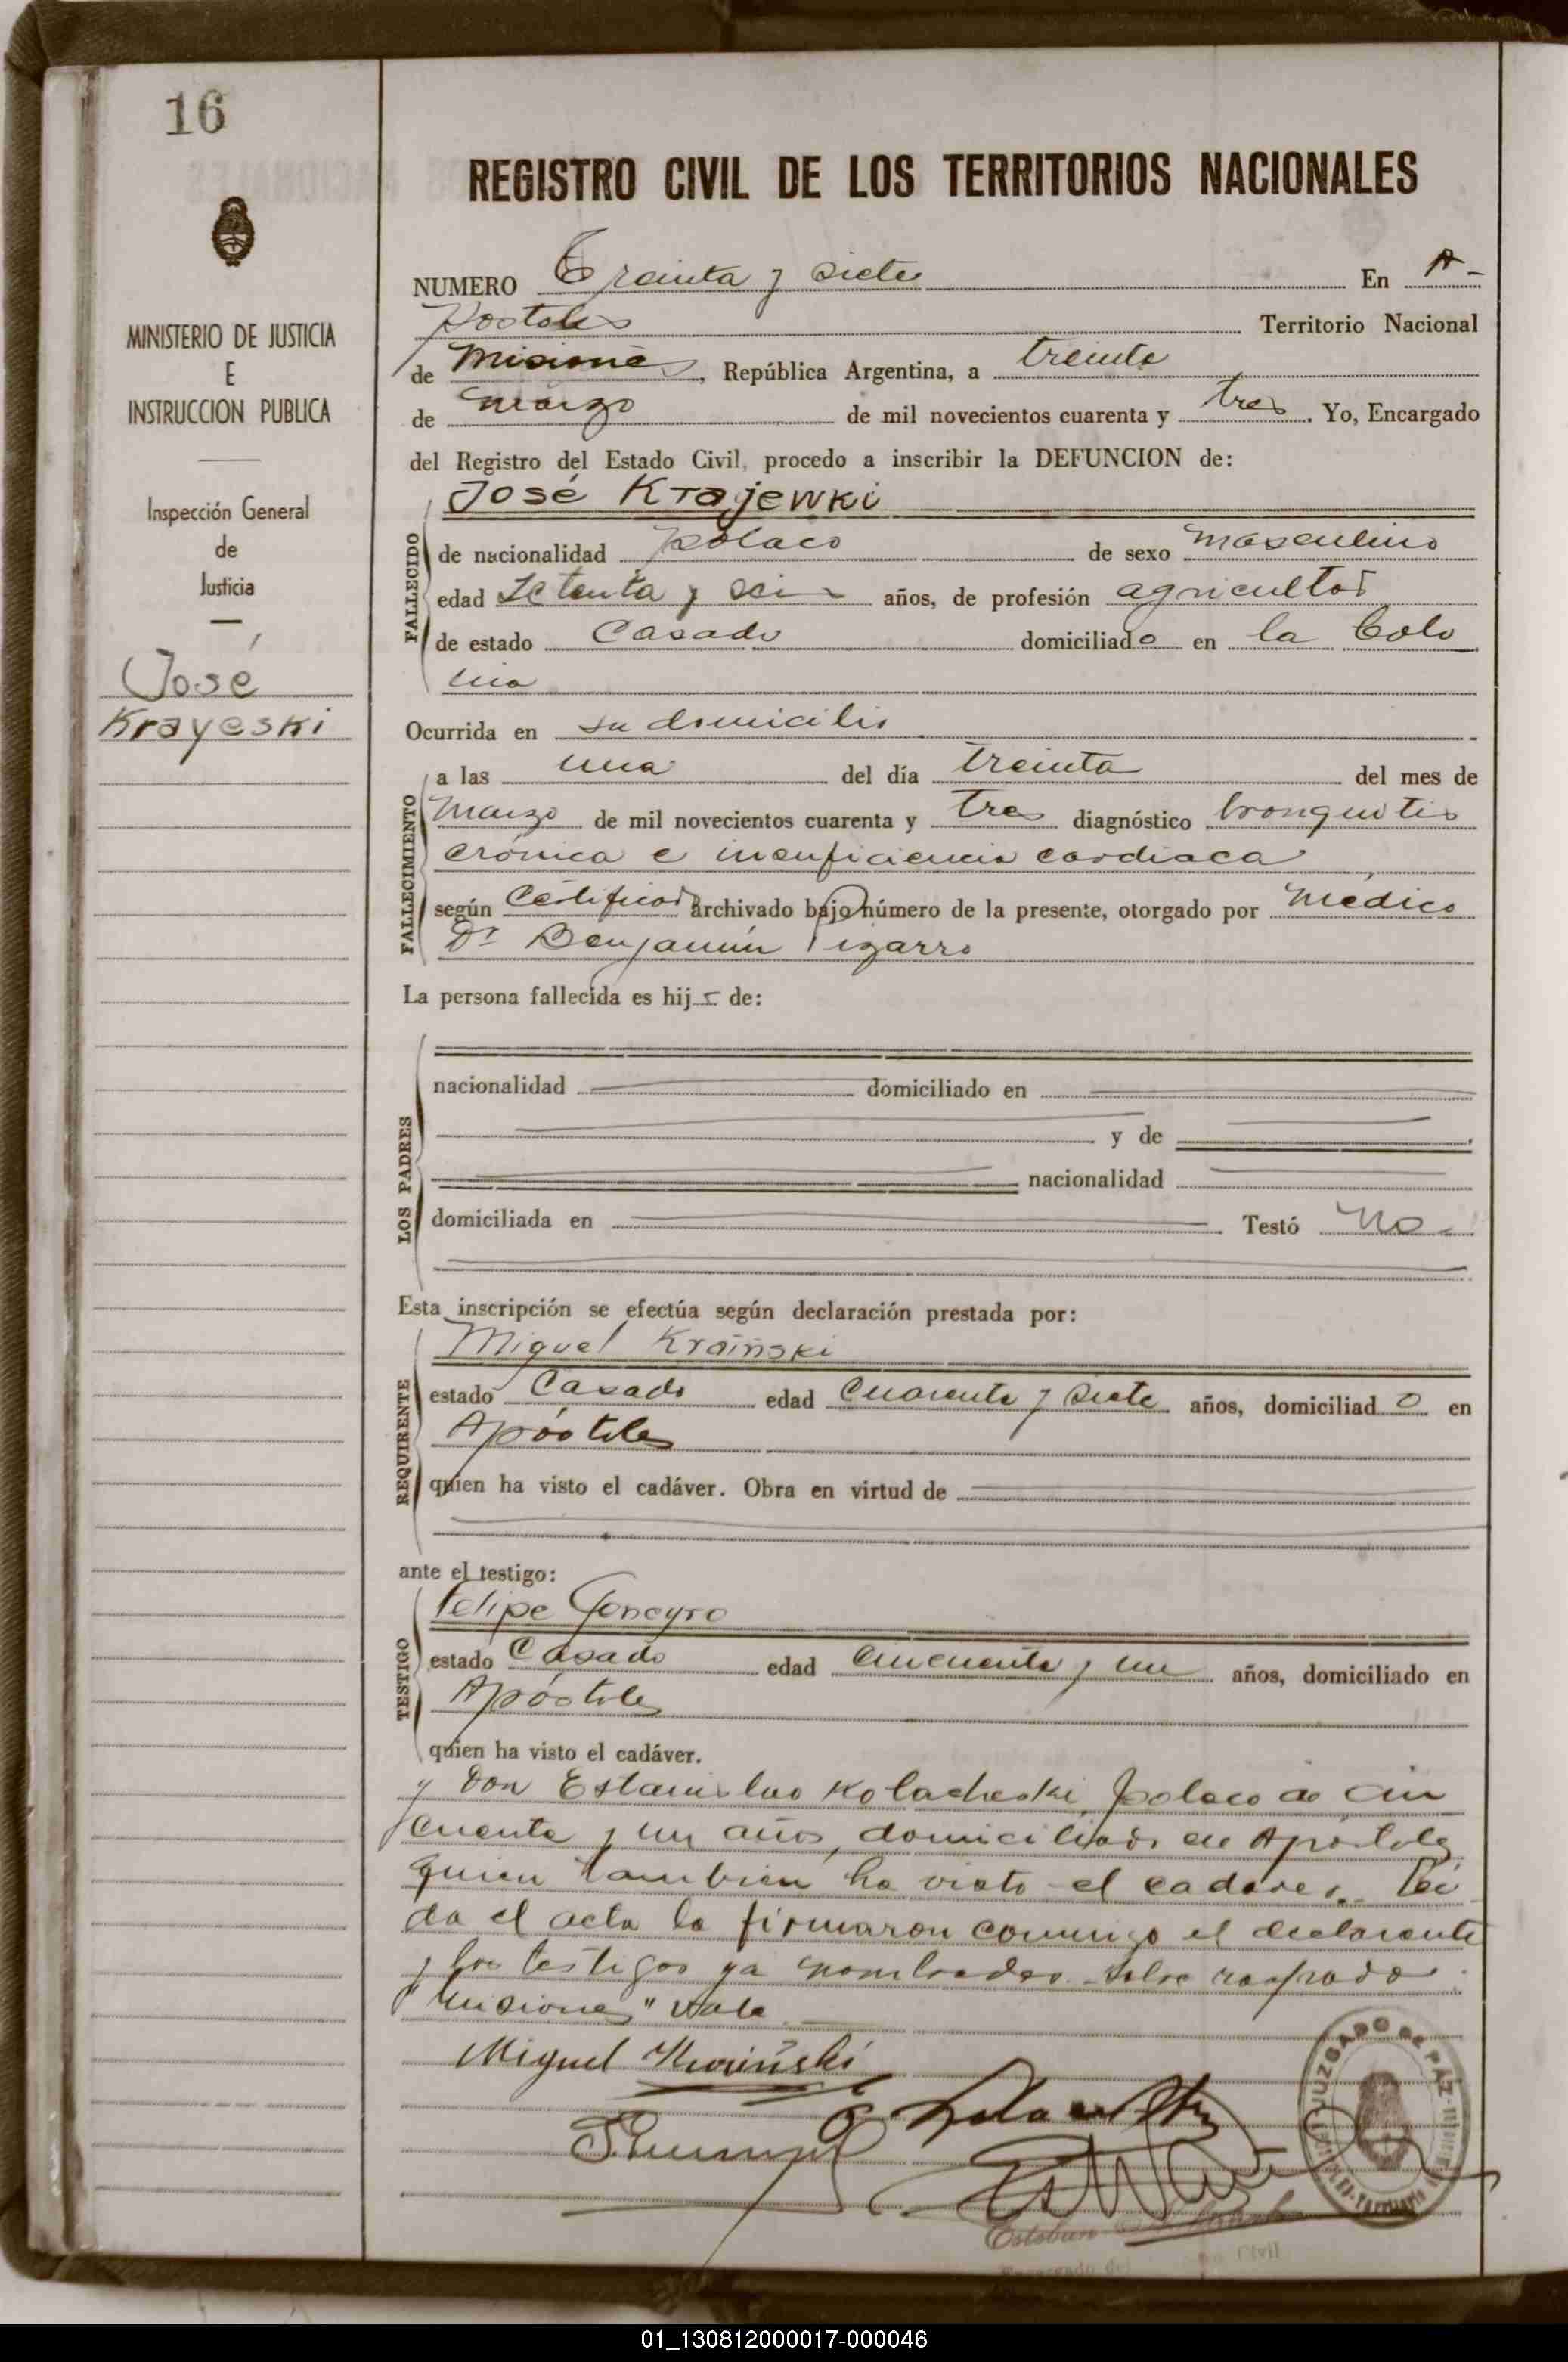 16
REGISTRO CIVIL DE LOS TERRITORIOS NACIONALES
MINISTERIO DE JUSTICIA
E
INSTRUCCION PUBLICA
Inspección General
de
Justicia
José
Krayeski
NUMERO Treinta y siete En A-
postoles Territorio Nacional
de Misiones, República Argentina, a treinta
de marzo de mil novecientos cuarenta y tres. Yo, Encargado
del Registro del Estado Civil, procedo a inscribir la DEFUNCION de:
José Krajewki
FALLECIDO
de nacionalidad polaco de sexo masculino
edad setenta y seis años, de profesión agricultor
de estado Casado domiciliado en la Colo
nia
Ocurrida en su domicilio
FALLECIMIENTO
a las una del día treinta del mes de
Marzo de mil novecientos cuarenta y tres diagnóstico bronquitis
crónica e insuficiencia cardiaca
según Certificado archivado bajo número de la presente, otorgado por médico
Dr Benjamín Pizarro
La persona fallecida es hijo de:
LOS PADRES
nacionalidad domiciliado en
y de
nacionalidad
domiciliada en Testó No-
Esta inscripción se efectúa según declaración prestada por:
Miguel Kraiñski
REQUIRENTE
estado Casado edad Cuarenta y siete años, domiciliado en
Apóstoles
quien ha visto el cadáver. Obra en virtud de
ante el testigo:
Felipe
TESTIGO
estado Casado edad Cincuenta y un años, domiciliado en
Apóstoles
quien ha visto el cadáver.
y Don Estanislao Kolacheski, polaco de cin
cuenta y un años, domiciliado en Apóstoles
quien tambien ha visto el cadaver. Lei
da el acta la firmaron conmigo el declarante
y los testigos ya nombrados. Sobre raspado:
"Misiones" vale
Miguel
JUZGADO DE PAZ
Esteban
Encargado del Civil
01_130812000017-000046